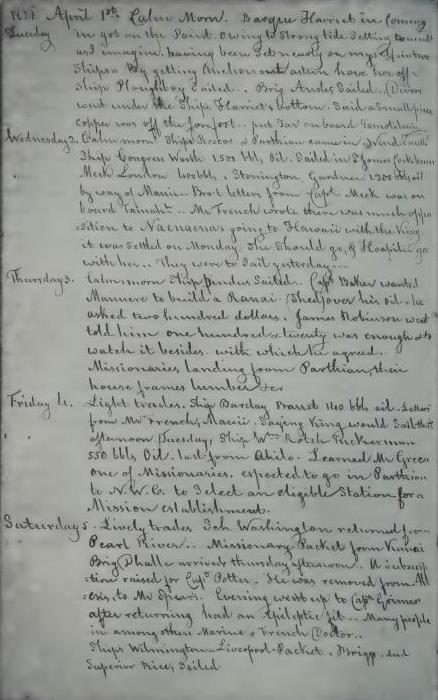 1828 April 1st Calm Morn. Barque Harriet in Coming
Tuesday in got on the Point. Owing to Strong tide Setting
us I imagine. having been Set nearly on my
Ships. By getting Anchors out astern hove her off
Ship Ploughboy Sailed.. Brig Andes Sailed. (Divers
went under the Ship Harriet's bottom. Said a Small piece
copper was off the forefoot.. put Tar on board
Wednesday 2. Calm morn Ships Roscoe & Parthian came in
Ship Congress Worth 1.500 bbls Oil. Sailed in St James Cockburn
Meek London 400 bbls. Stonington Gurdner 1.200 bbls oil
by way of Maui.. Bro't letters from Capt.. Meek was on
board Tamaht.. Mr French wrote there was much oppo
sition to Naenaena's going to Hawaii with the King
it was Settled on Monday. She Should go, & Hoapili go
with her.. They were to Sail yesterday...
Thursday 3. Calm morn Ship Pindus Sailed.. Capt Baker wanted
Mannere to build a Ranai (Shed) over his oil. he
asked two hundred dollars. James Robinson went
told him one hundred & twenty was enough & to
watch it besides. with which he agreed..
Missionaries landing from Parthian, their
house frames lumber &c
Friday 4. Light trades. Ship Barclay Prasset 140 bbls oil.. Letters
from Mr French, Maui. Saying King would Sail that
afternoon (Tuesday) Ship Wm Rotch Tuckerman
550 bbls Oil. last from Ahilo. Learned Mr Green
one of Missionaries. expected to go in Parthian
to N.W.C. to Select an eligible Station for a
Mission establishment.
Saturday 5. Lively trades Sch Washington returned from
Pearl River.. Missionary Packet from Kauai
Brig Dhalle arrived thursday afternoon. A Subscrip
tion raised for Capt Potter. He was removed from
to Mr Spears. Evening went up to Capt
after returning had an Epileptic fit... Many people
in among others Marine & French Doctor..
Ships Wilmington & Liverpool Packet. Briggs. and
Superior Rice, Sailed